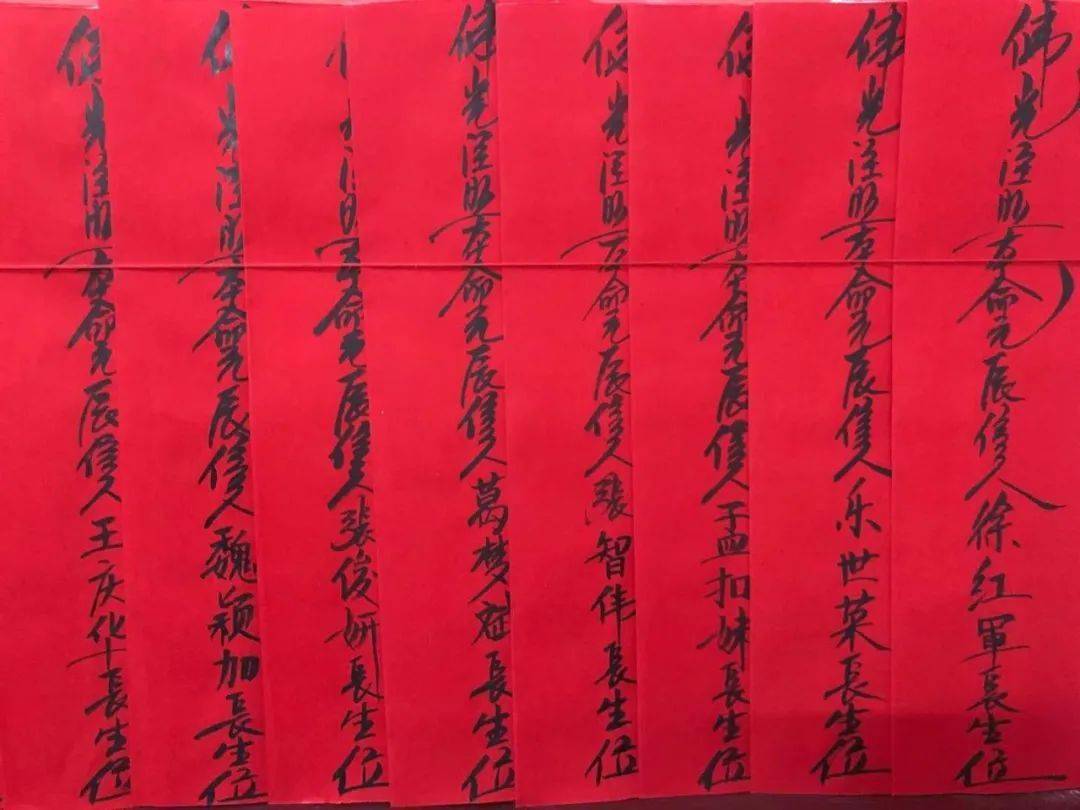 佛光注照本命元辰信人徐红軍長生位
佛光注照本命元辰信人乐世菜長生位
佛光注照本命元辰信人孟扣妹長生位
佛光注照本命元辰信人張智伟長生位
佛光注照本命元辰信人萬梦 長生位
佛光注照本命元辰信人張俊妍長生位
佛光注照本命元辰信人魏颖加長生位
佛光注照本命元辰信人王庆华長生位